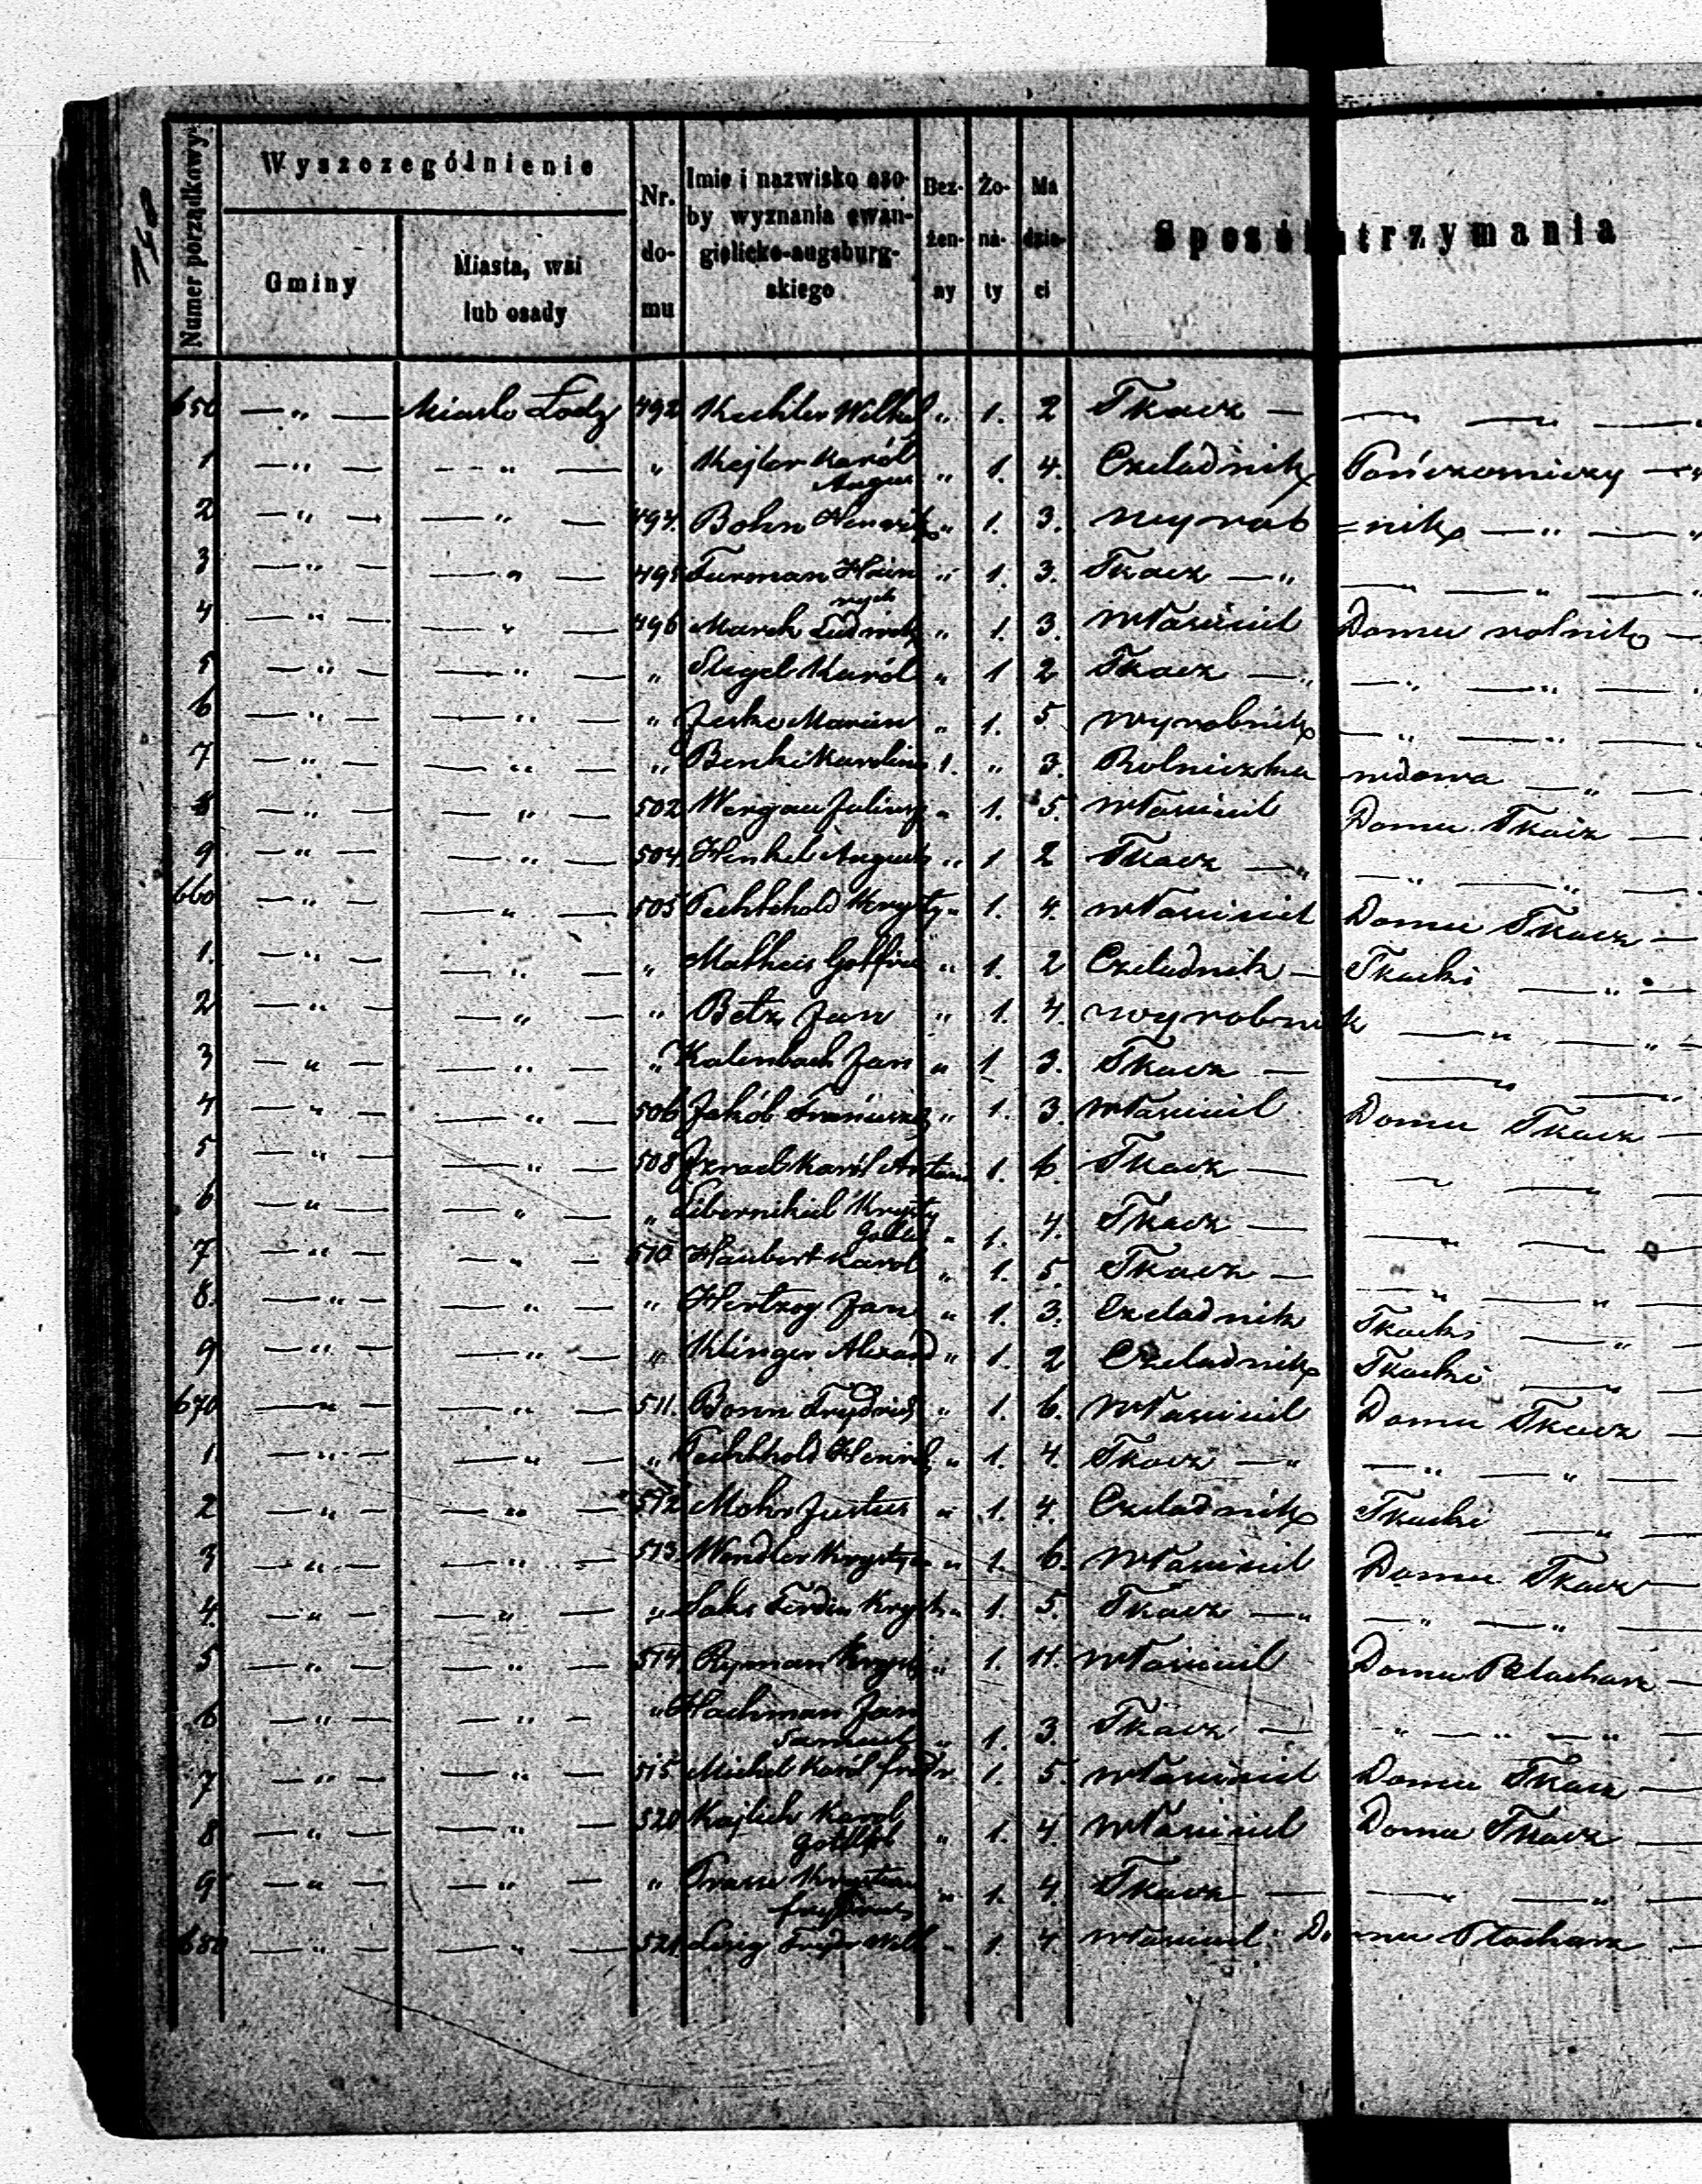 Numer porządkowy
Wyszczególnienie
Gminy
Miasta, wsi lub osady
Nr. do- mu
Imie i nazwisko oso- by wyznania ewan- gielicko-augsburg- skiego
Bez- żen- ny
Żo- na- ty
Ma dzie- ci
Sposób utrzymania
650 —„— Miasto Łodz 492 Kechler Wilhel „ 1. 2 Tkacz — — — —
1 —„— —„— „ Kejlor Karól August „ 1. 4. Czeladnik Pończoniczy —
2 —„— —„— 494. Bohn Henrik „ 1. 3. wyrob=nik —„—
3 —„— —„— 495 Furman Hein rych „ 1. 3. Tkacz —„— —„—
4 —„— —„— 496 March Ludwik „ 1. 3. własciciel Domu rolnik —
5 —„— —„— „ Stegel Karól „ 1 2 Tkacz —„ —„—
6 —„— —„— „ Jeske Marcin „ 1. 5 wyrobnik —„—
7 —„— —„— „ Benke Karolina 1. „ 3. Rolniczka wdowa —„—
8 —„— —„— 502 Wergau Juliusz „ 1. 5. własciciel Domu Tkacz —
9 —„— —„— 504 Henkel August „ 1 2 Tkacz —„ —„—
660 —„— —„— 505 Pechthold Krysty „ 1. 4. własciciel Domu Tkacz —
1. —„— —„— „ Matheis Gotfrid „ 1. 2 Czeladnik — Tkacki —„—
2 —„— —„— „ Betz Jan „ 1. 4. wyrobnik —„—
3 —„— —„— „ Kalenbach Jan „ 1 3. Tkacz — —„—
4 —„— —„— 506 Jakób Franciszek „ 1. 3. własciciel Domu Tkacz —
5 —„— —„— 508 Izrael Karól Antoni 1. 6. Tkacz — — —
6 —„— —„— „ Libernikiel Krysty Gotlib „ 1. 4. Tkacz — — —
7 —„— —„— 510 Haubert Karol „ 1. 5. Tkacz — —„—
8. —„— —„— „ Hertzog Jan „ 1. 3. Czeladnik Tkacki —„—
9 —„— —„— „ Klinger Alexand „ 1. 2 Czeladnik Tkacki —
670 —„— —„— 511. Bonn Frydrich „ 1. 6. własciciel Domu Tkacz —
1. —„— —„— „ Pechthold Henrik „ 1. 4. Tkacz —„ —„—
2 —„— —„— 512 Mohr Justus „ 1. 4. Czeladnik Tkacki —„—
3 —„— —„— 513. Wendler Krystyan „ 1. 6. własciciel Domu Tkacz —
4. —„— —„— „ Saks Ferdin Kryst „ 1. 5. Tkacz —„ —„—
5 —„— —„— 514. Ryman Kryst „ 1. 11. własciciel Domu Blacharz —
6 —„— —„— „ Hachman Jan Samuel „ 1. 3. Tkacz — —„—
7 —„— —„— 515 Michel Karól fridr 1. 5. własciciel Domu Tkacz —
8 —„— —„— 520 Kajlich Karol Gotlib „ 1. 4. własciciel Domu Tkacz —
9 —„— —„— „ Krystian frydrich „ 1. 4. Tkacz — —„—
680 —„— —„— 521. Fryder Wilh „ 1. 4. własciciel Domu Blacharz —